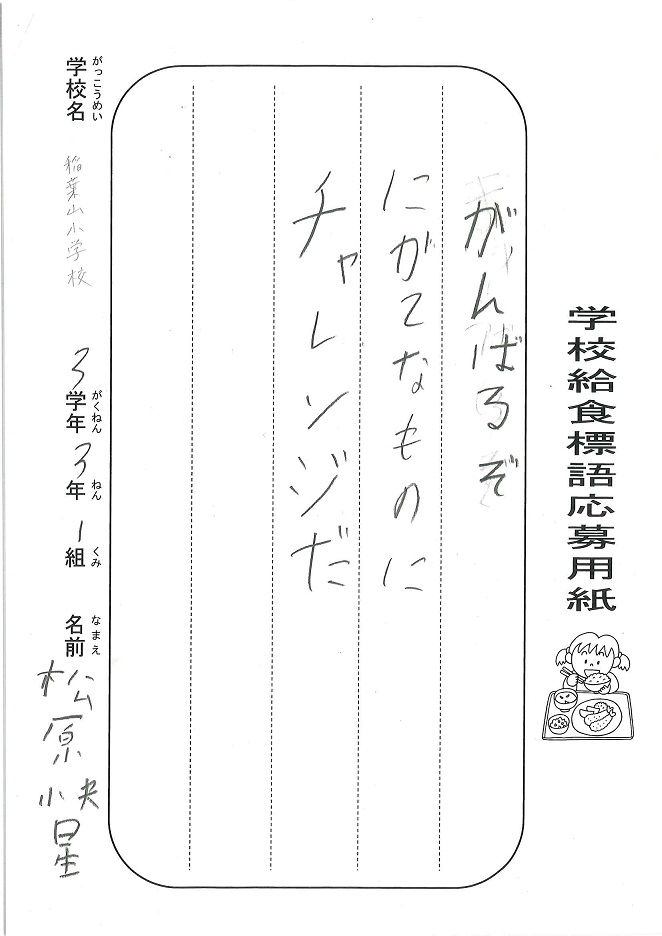 学校給食標語応募用紙
がんばるぞ
にがてなものに
チャレンジだ
がっこうめい
学校名
稲葉山小学校
がくねん
3学年
ねん
3年
くみ
1組
なまえ
名前
松原
星